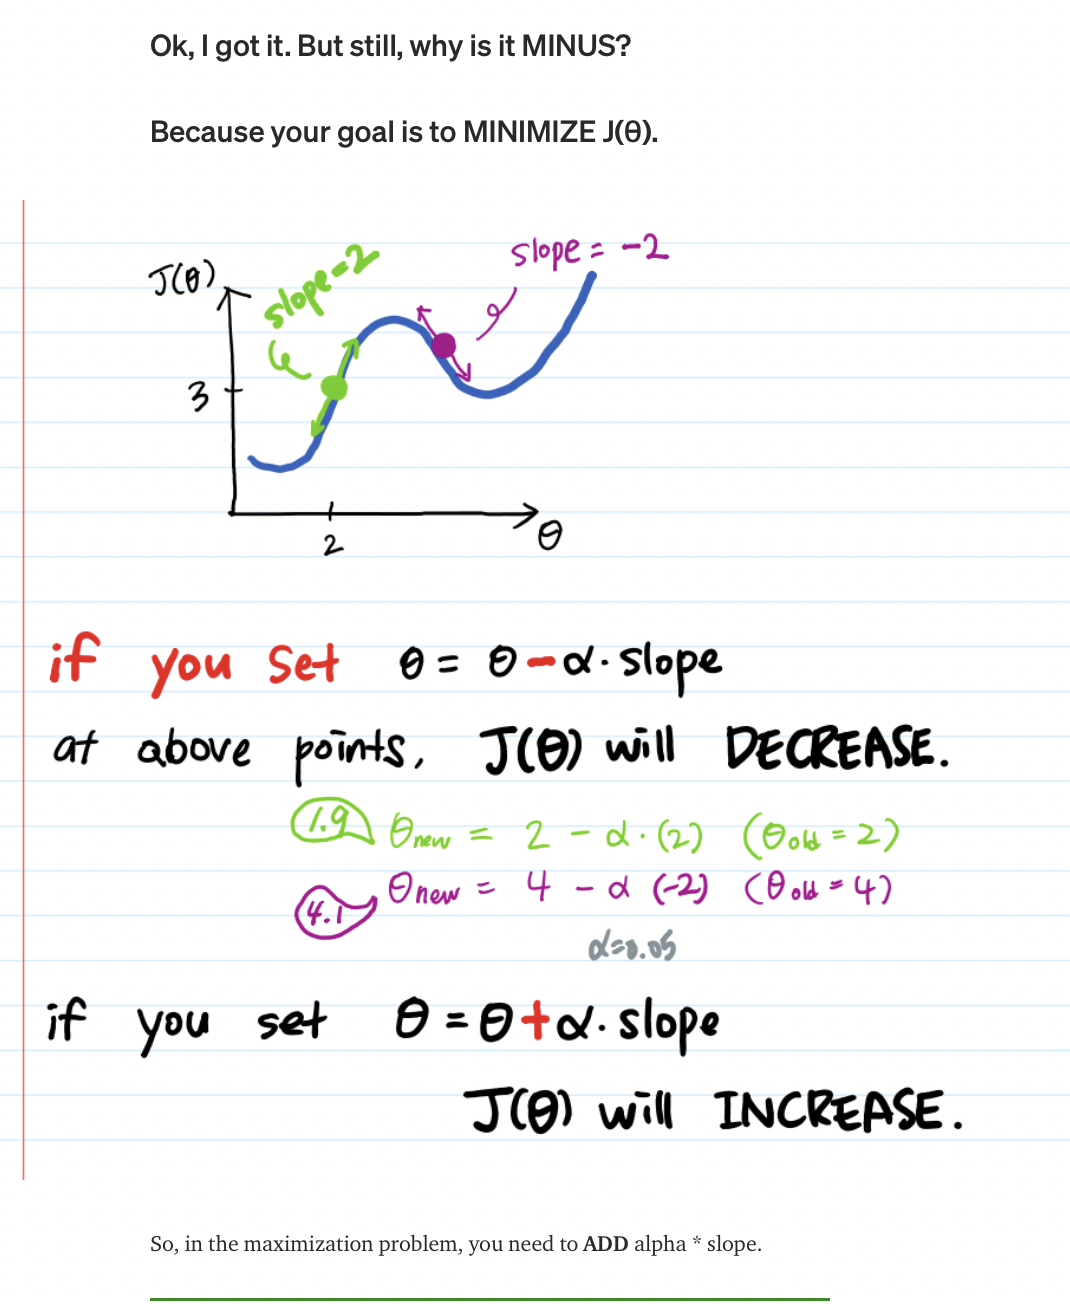 Ok, I got it. But still, why is it MINUS?
Because your goal is to MINIMIZE J(θ).
slope = -2
J(θ)
slope=2
3
2
θ
if you set θ = θ - α · slope
at above points, J(θ) will DECREASE.
1.9 θnew = 2 - α · (2) (θold = 2)
4.1 θnew = 4 - α (-2) (θold = 4)
α=0.05
if you set θ = θ + α · slope
J(θ) will INCREASE.
So, in the maximization problem, you need to ADD alpha * slope.